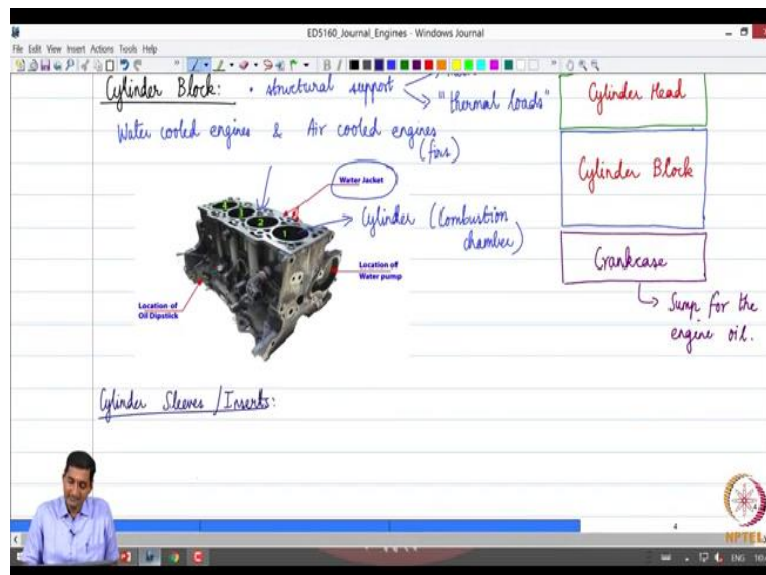 ED5160_Journal_Engines - Windows Journal
File Edit View Insert Actions Tools Help
Cylinder Block: • structural support
"thermal loads"
Water cooled engines & Air cooled engines
(fins)
Water Jacket
4
3
2
1
Cylinder (Combustion
chamber)
Location of
Water pump
Location of
Oil Dipstick
Cylinder Sleeves / Inserts:
Cylinder Head
Cylinder Block
Crankcase
Sump for the
engine oil.
4
NPTEL
ENG